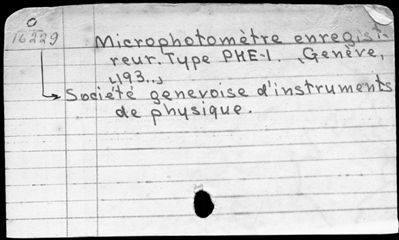 O
16229
Microphotomètre enregist-
reur. Type PHE-1. , Genève,
,193..,
Société genevoise d'instruments
de physique.